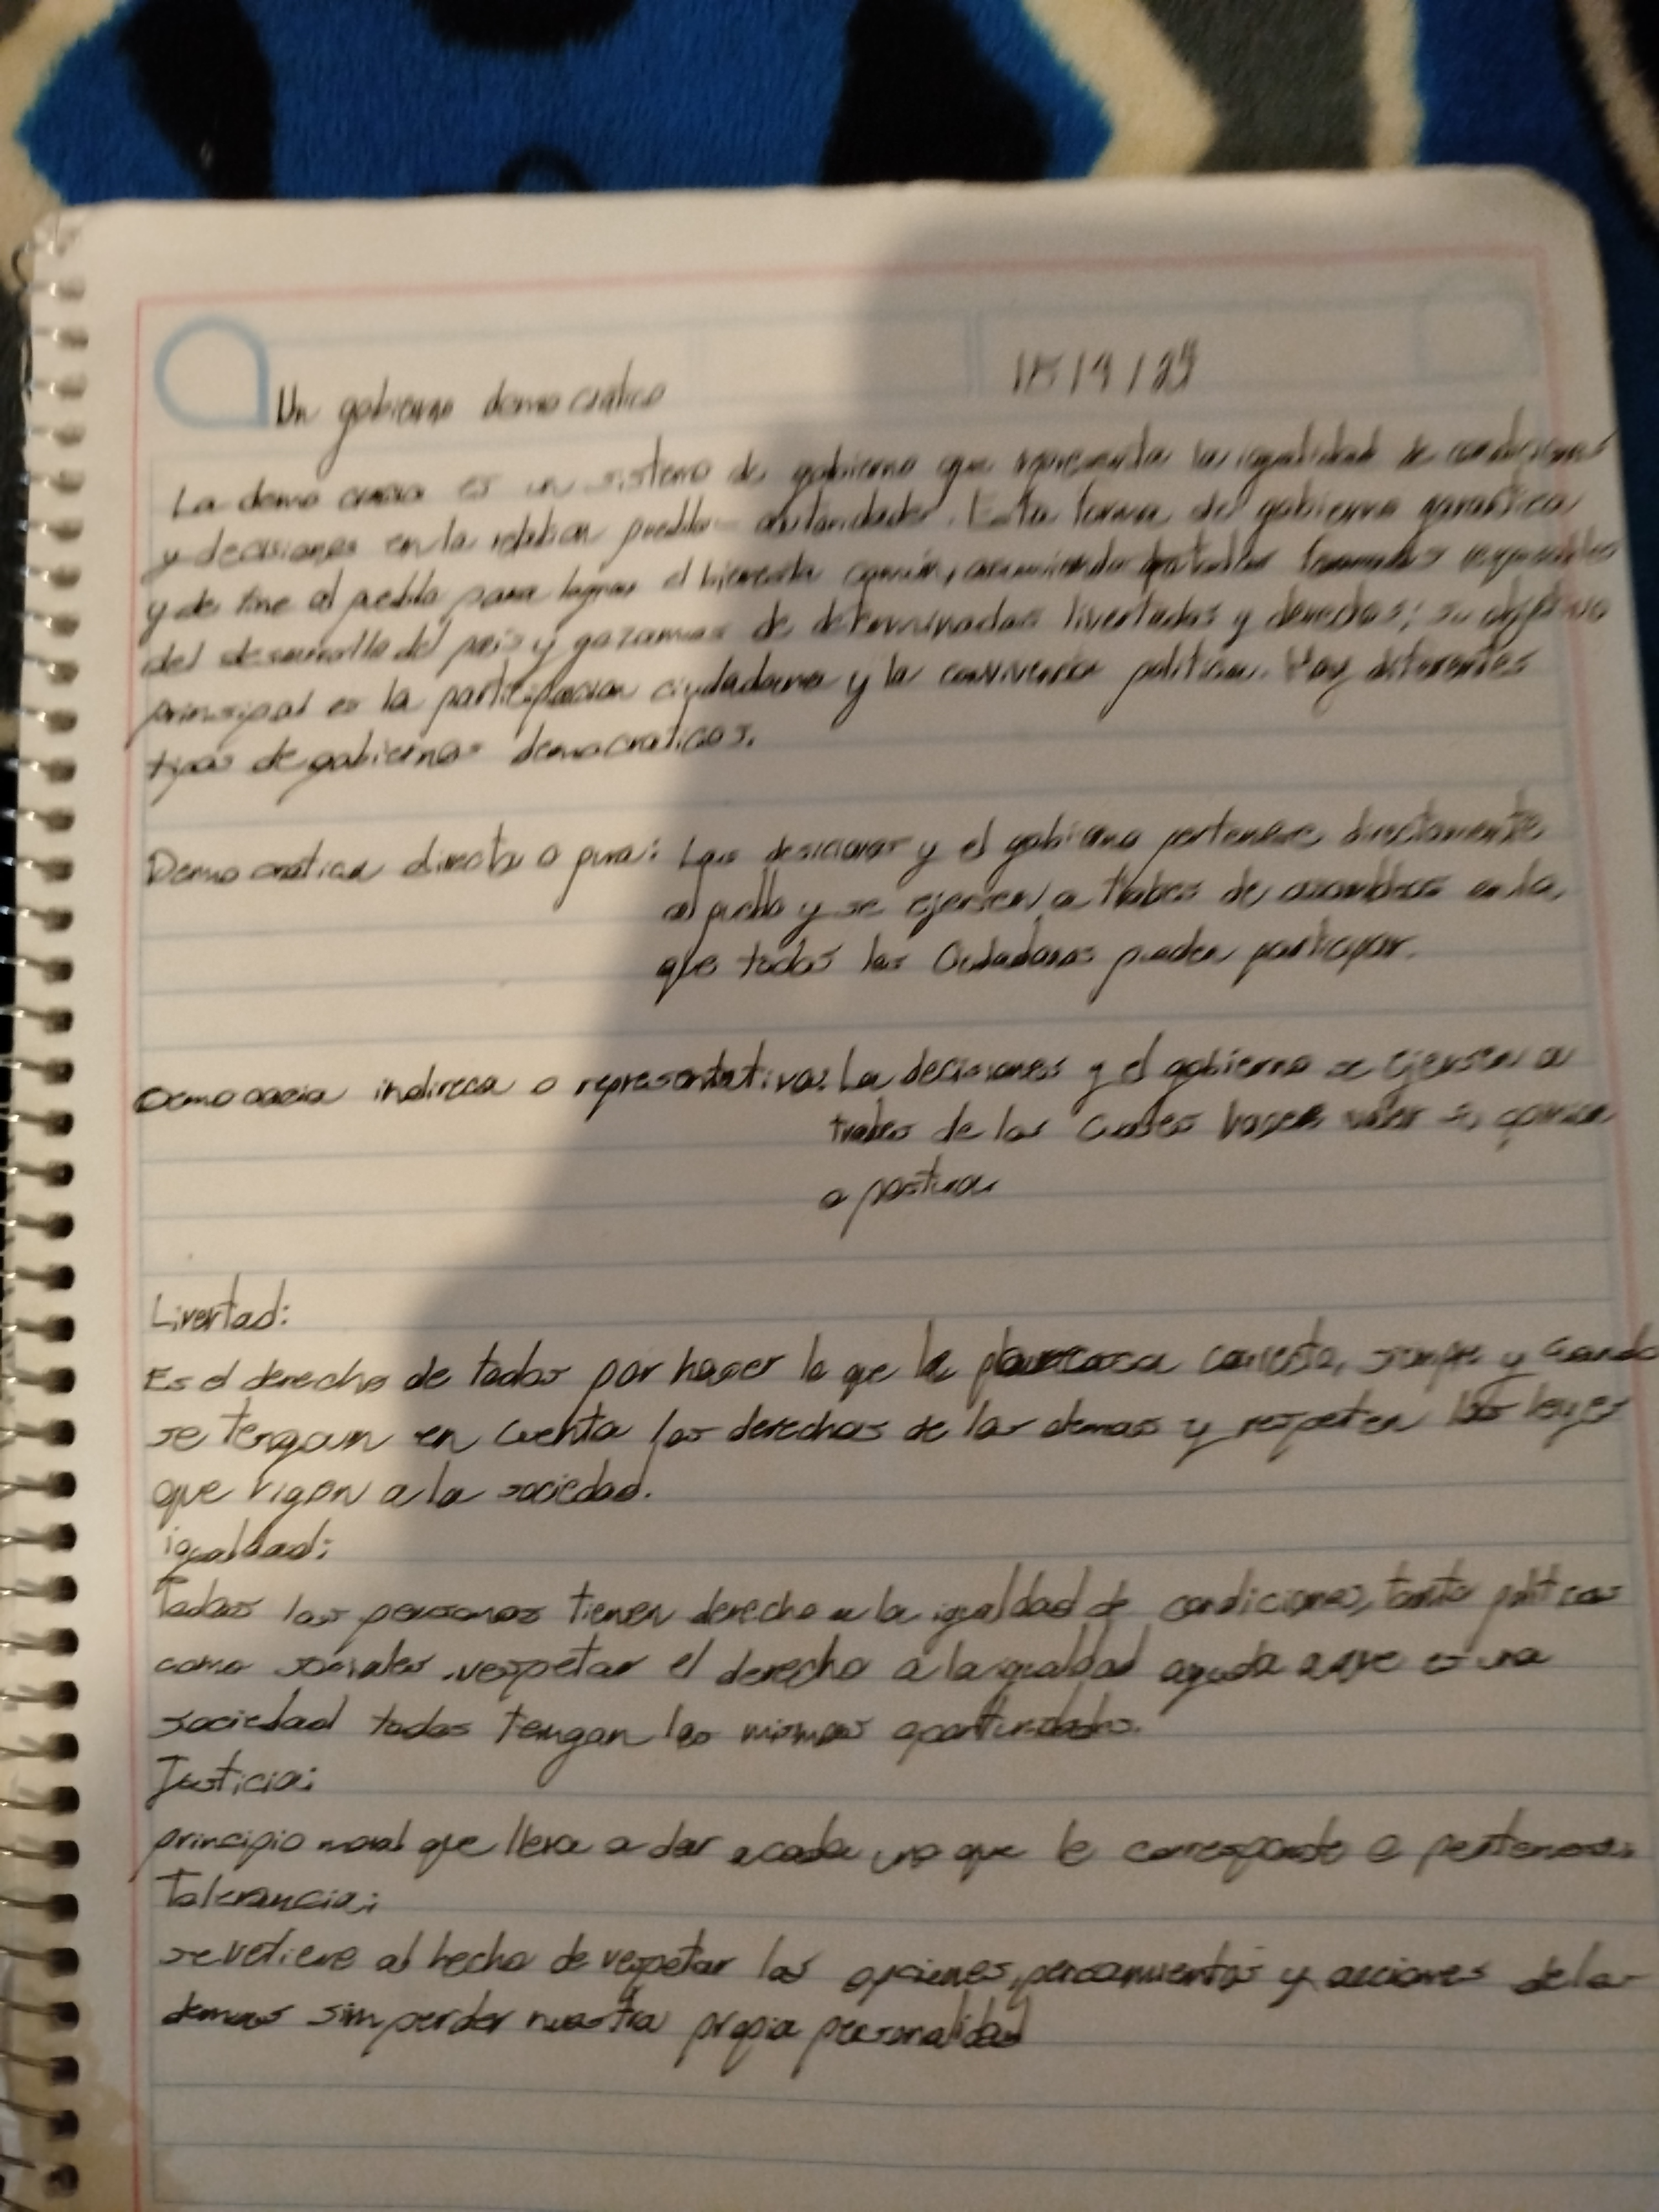 Un gobierno democratico
La democracia es un sistema de gobierno que representa la igualdad de condiciones
y decisiones en la relacion pueblo - autoridades. Esta forma de gobierno garantica
y define al pueblo para lograr el bienesta común, asumiendo
del desarrollo del pais y gozamos de determinadas livertades y derechos; su objetivo
principal es la participacion ciudadana y la convivencia politica. Hay diferentes
tipos de gobiernos democraticos.
Democratica directa o pura: Las desiciones y el gobierno pertenece directamente
al pueblo y se ejersen a trabes de asambleas en la
que todos los Ciudadanos pueden participar.
Democracia indireca o representativa: La decisiones y el gobierno se ejersen a
trabes de los cuales hacer valer su
o postura
Livertad:
Es el derecho de todos por hacer lo que le correcto, siempre y cuando
se tengan en cuenta los derechos de los demas y respeten las leyes
que rigen a la sociedad.
igualdad:
Todas las personas tienen derecho a la igualdad de condiciones, tanto politicas
como sociales. respetar el derecho a la igualdad ayuda a que en una
sociedad todos tengan las mismas oportunidades.
Justicia:
principio moral que lleva a dar a cada uno que le corresponde o pertenece.
Tolerancia:
se refiere al hecho de respetar las opciones, pensamientos y acciones de los
demas sin perder nuestra propia personalidad